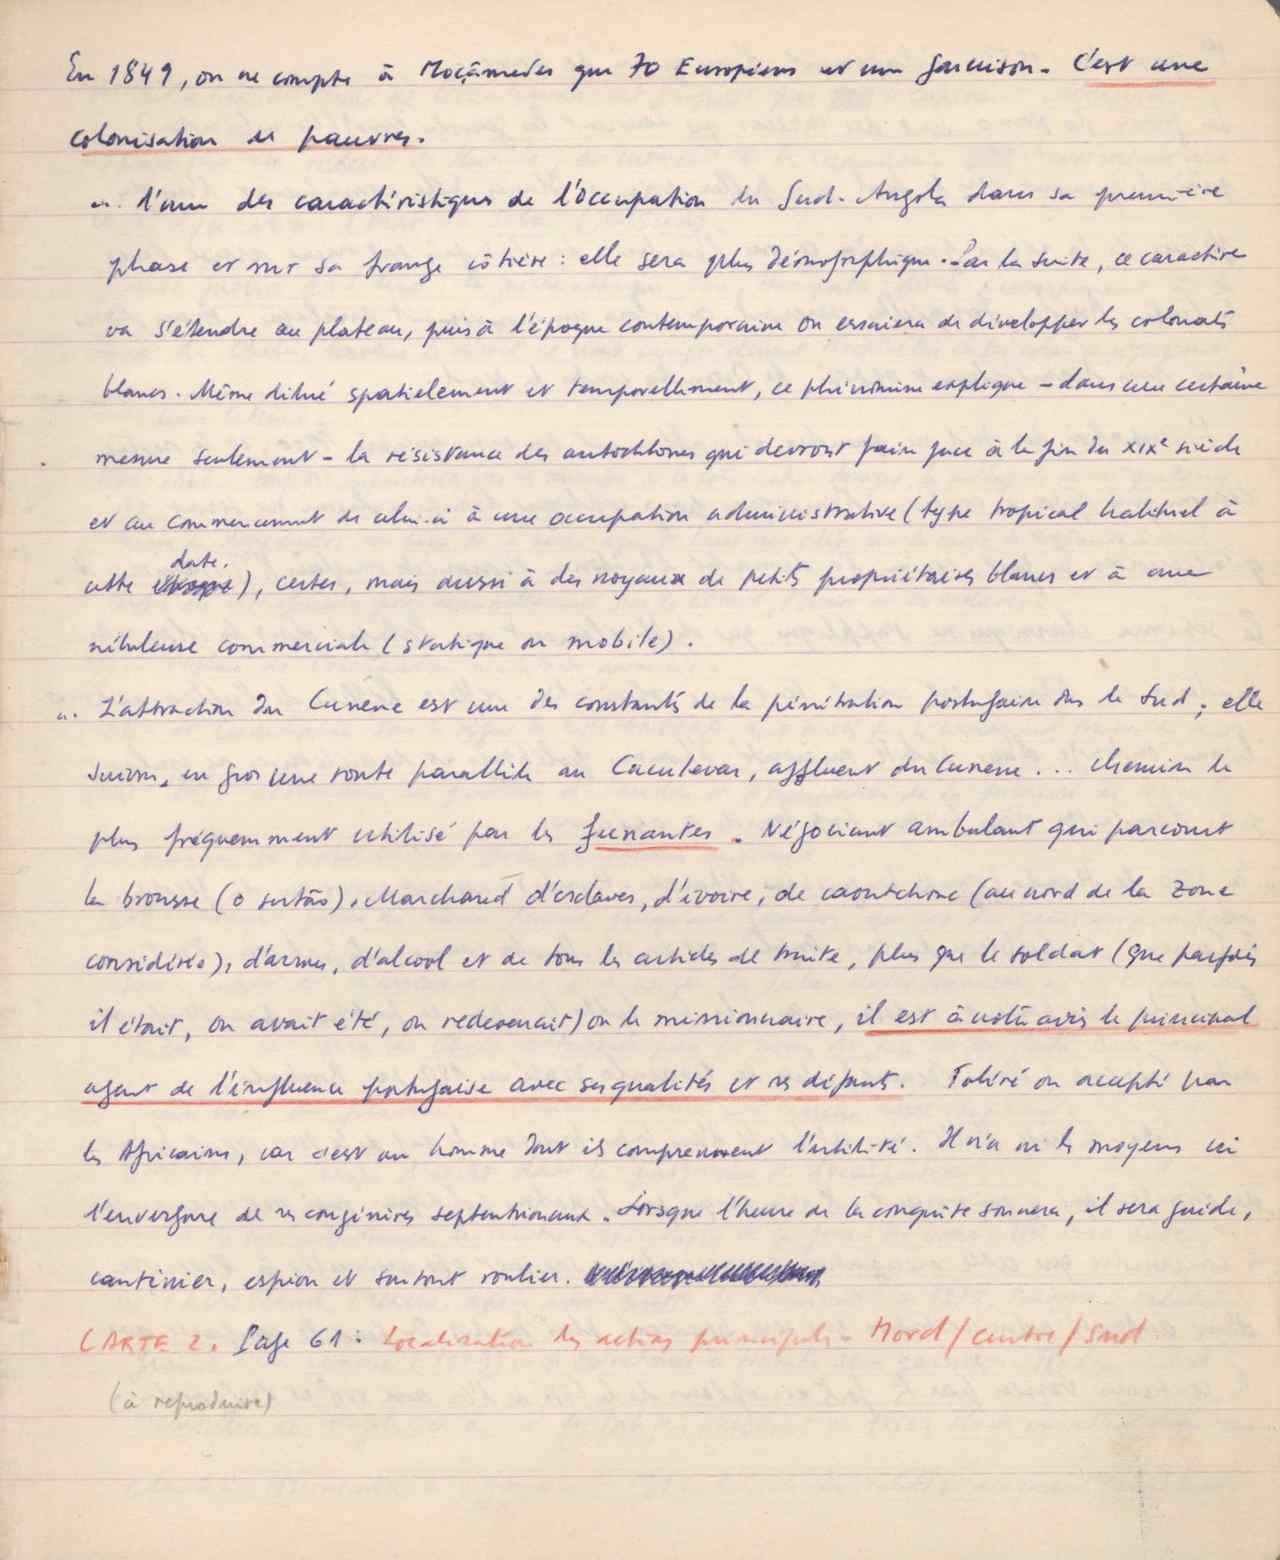 En 1849, on ne compte à Moçâmedes que 70 Européens et une garnison. C'est une
colonisation de pauvres.
". l'une des caractéristiques de l'Occupation du Sud-Angola dans sa première
phase et sur sa frange côtière : elle sera plus démographique. Par la suite, ce caractère
va s'étendre au plateau, puis à l'époque contemporaine on essaiera de développer les colonats
blancs. Même dilué spatialement et temporellement, ce phénomène explique – dans une certaine
mesure seulement – la résistance des autochtones qui devront faire face à la fin du XIXe siècle
et au commencement de celui-ci à une occupation administrative (type tropical habituel à
cette date), certes, mais aussi à des noyaux de petits propriétaires blancs et à une
nébuleuse commerciale (statique ou mobile).
". L'attraction du Cunene est une des constantes de la pénétration portugaise dans le Sud ; elle
suivra, en gros une route parallèle au Caculevar, affluent du Cunene... chemin le
plus fréquemment utilisé par les funantes. Négociant ambulant qui parcourt
la brousse (o sertão). Marchand d'esclaves, d'ivoire, de caoutchouc (au nord de la zone
considérée), d'armes, d'alcool et de tous les articles de traite, plus que le soldat (que parfois
il était, ou avait été, ou redevenait) ou le missionnaire, il est à notre avis le principal
agent de l'influence portugaise avec ses qualités et ses défauts. Toléré ou accepté par
les Africains, car c'est un homme dont ils comprennent l'utilité. Il n'a ni les moyens ni
l'envergure de ses congénères septentrionaux. Lorsque l'heure de la conquête sonnera, il sera guide,
cantinier, espion et surtout roulier.
CARTE 2. Page 61 : Localisation des actions principales – Nord/centre/Sud
(à reproduire)